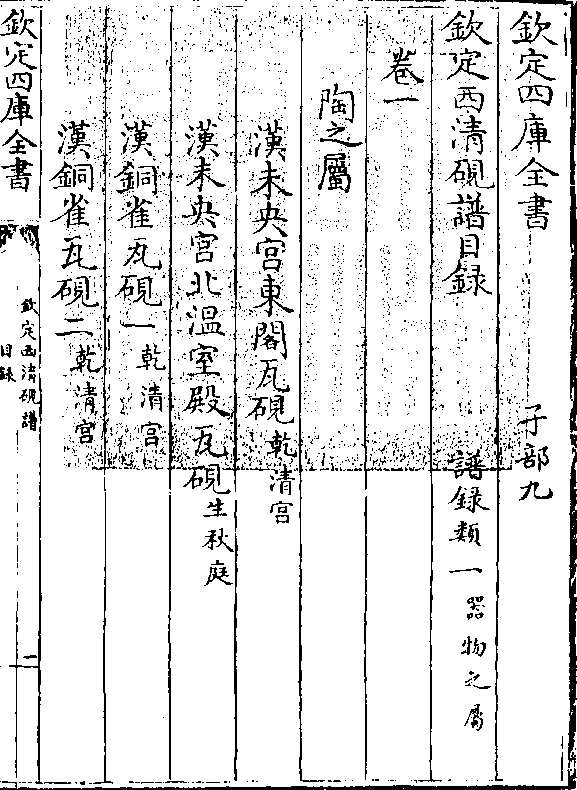 欽定四庫全書　子部九
欽定西清硯譜目錄　譜錄類一器物之屬
卷一
陶之屬
漢未央宫東閣瓦硯乾清宫
漢未央宫北温室殿瓦硯生秋庭
漢銅雀瓦硯一乾清宫
漢銅雀瓦硯二乾清宫
欽定四庫全書
欽定西清硯譜
目錄
一